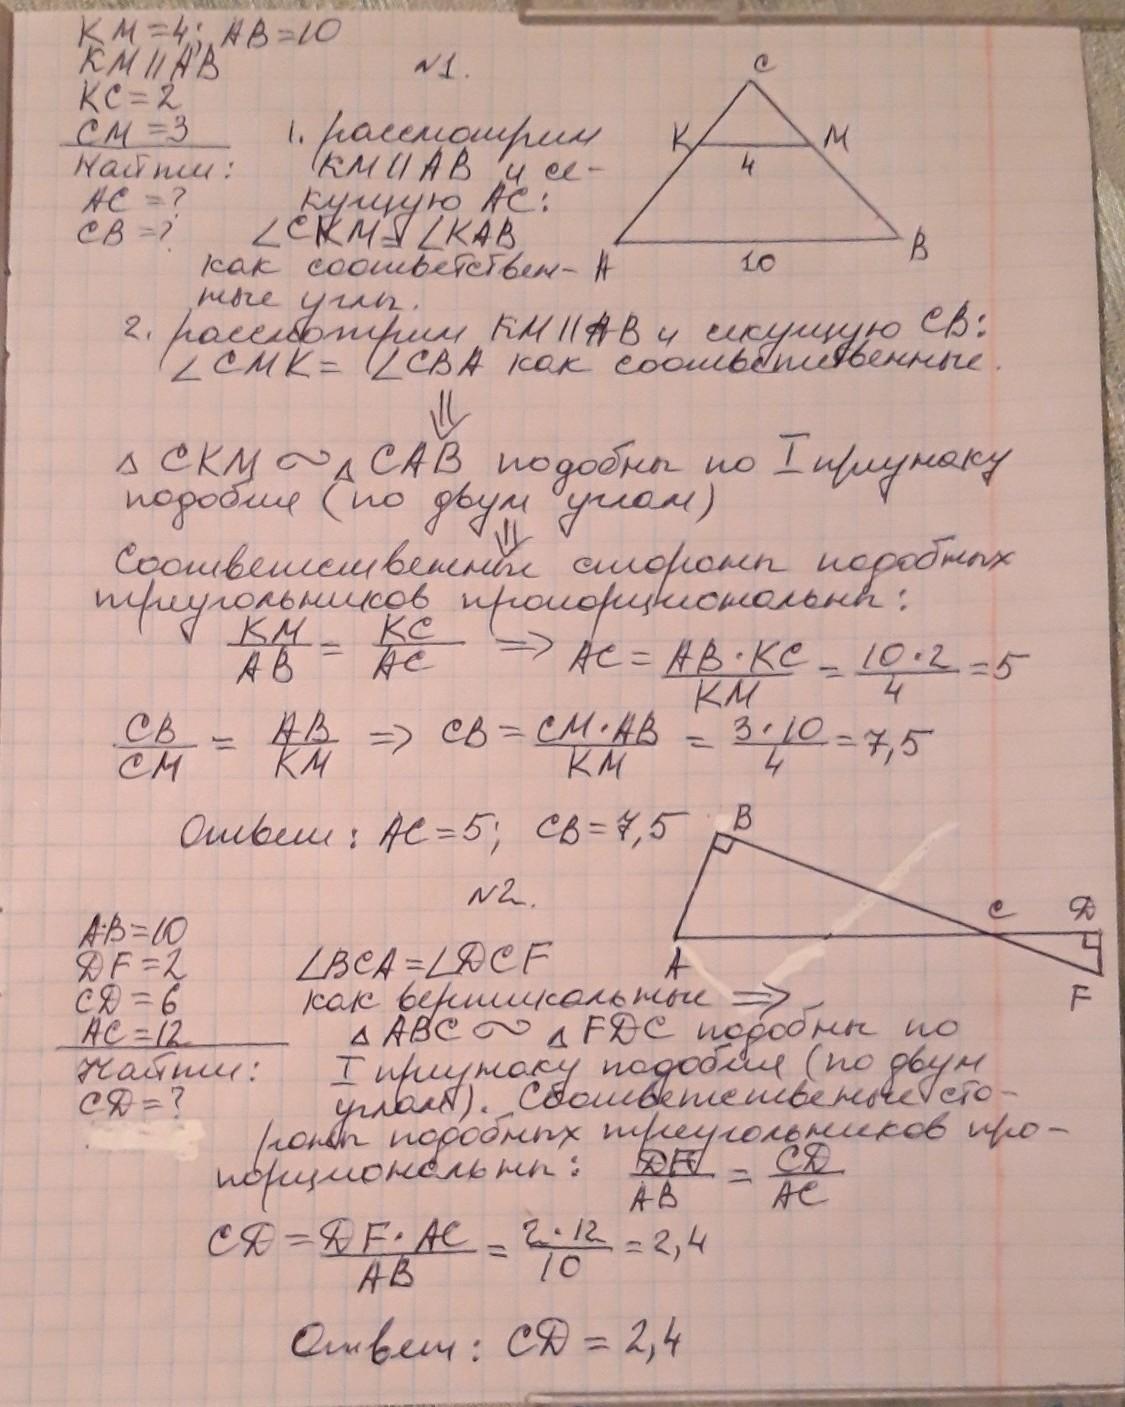 KM = 4; AB = 10
KM || AB
KC = 2
CM = 3
Найти:
AC = ?
CB = ?
N1.
C
K
M
4
A
B
10
1. рассмотрим
KM || AB и се-
кущую AC:
∠CKM = ∠KAB
как соответствен-
ные углы.
2. рассмотрим KM || AB и секущую CB:
∠CMK = ∠CBA как соответственные.
⇓
△ CKM ∾ △ CAB подобны по I признаку
подобия (по двум углам)
⇓
Соответственные стороны подобных
треугольников пропорциональны:
KM/AB = KC/AC ⇒ AC = AB·KC/KM = 10·2/4 = 5
CB/CM = AB/KM ⇒ CB = CM·AB/KM = 3·10/4 = 7,5
Ответ: AC = 5; CB = 7,5
N2.
B
C
D
A
F
AB = 10
DF = 2
CD = 6
AC = 12
Найти:
CD = ?
∠BCA = ∠DCF
как вертикальные ⇒
△ ABC ∾ △ FDC подобны по
I признаку подобия (по двум
углам). Соответственные сто-
роны подобных треугольников про-
порциональны: DF/AB = CD/AC
CD = DF·AC/AB = 2·12/10 = 2,4
Ответ: CD = 2,4